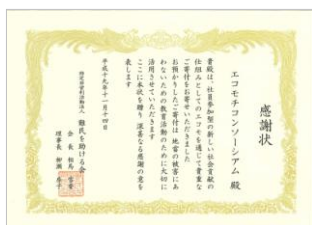 感謝状
エコモチコンソーシアム 殿
貴殿は、社員参加型の新しい社会貢献の
仕組みとしてのエコモを通じて貴重な
ご寄付をお寄せいただきました
お預かりしたご寄付は 地雷の被害にあ
わないための教育活動のために大切に
活用させていただきます
ここに本状を贈り 深甚なる感謝の意を
表します
平成十九年十一月十四日
特定非営利活動法人 難民を助ける会
会長 相馬 雪香
理事長 柳瀬 房子